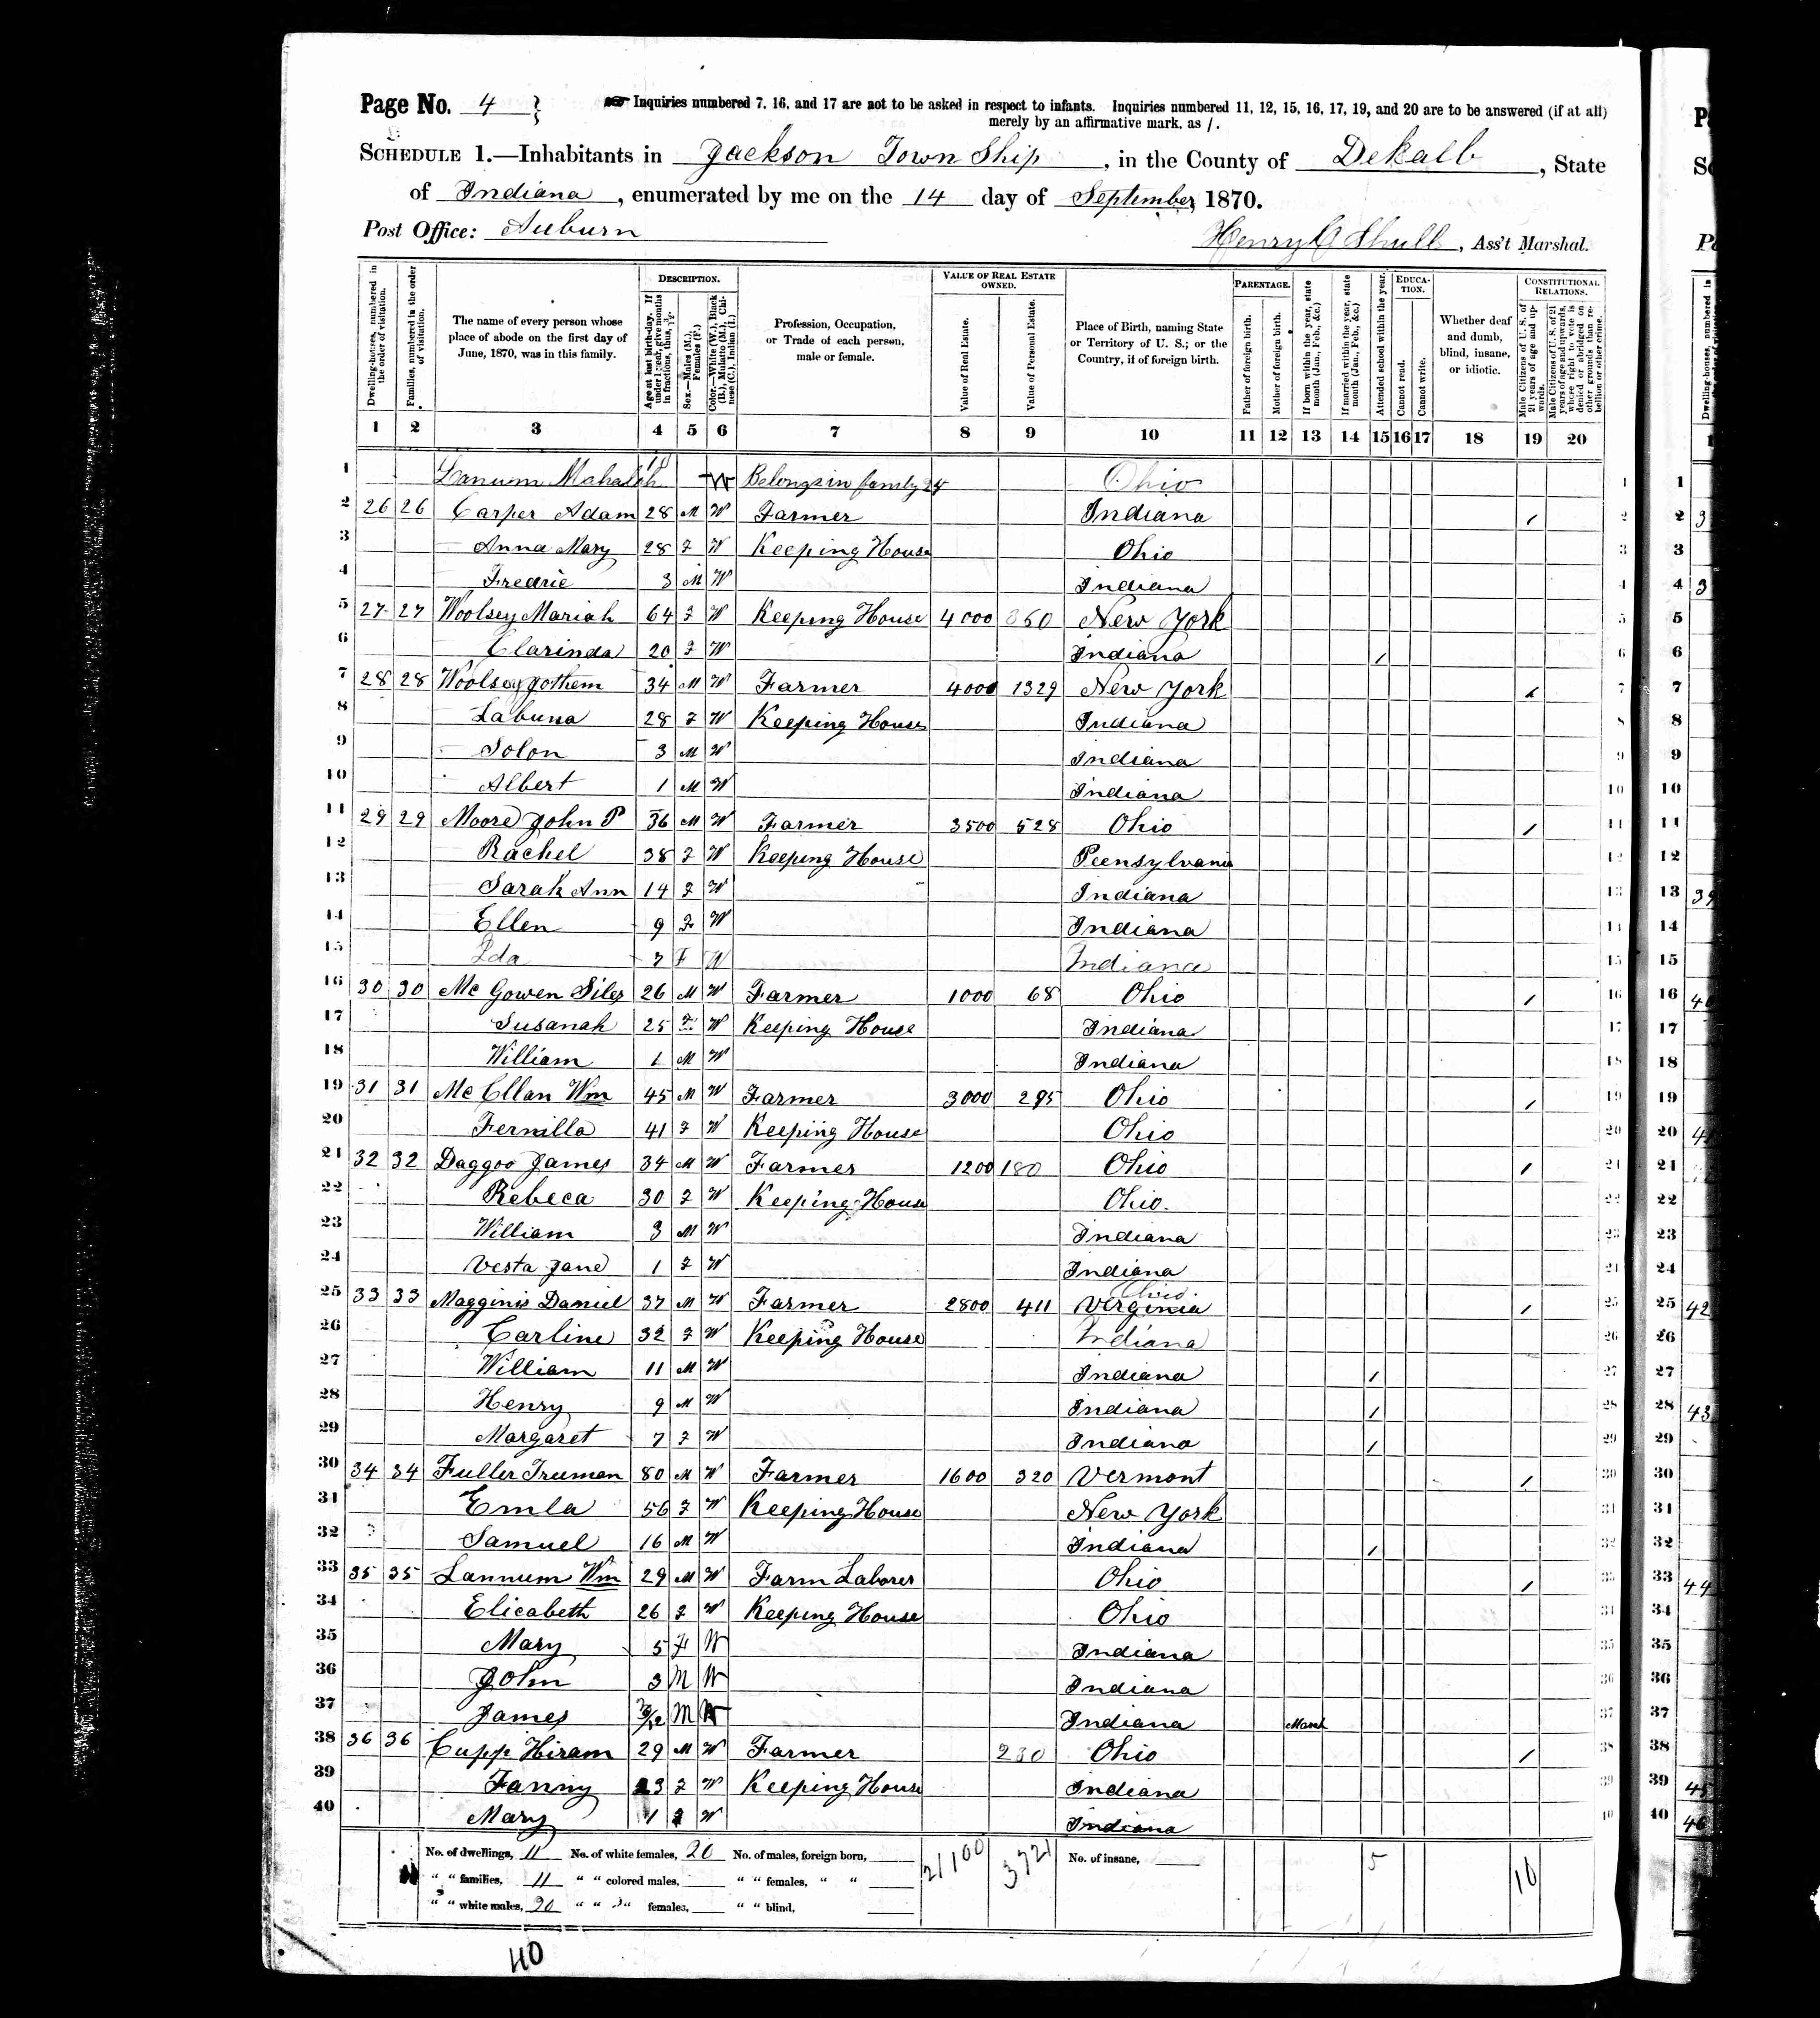 Page No. 4
Inquiries numbered 7, 16, and 17 are not to be asked in respect to infants. Inquiries numbered 11, 12, 15, 16, 17, 19, and 20 are to be answered (if at all)
merely by an affirmative mark, as /.
SCHEDULE 1.—Inhabitants in Jackson Town Ship, in the County of Dekalb, State
of Indiana, enumerated by me on the 14 day of September, 1870.
Post Office: Auburn
Henry C Shull, Ass't Marshal.
Dwelling-houses, numbered in the order of visitation.
Families, numbered in the order of visitation.
The name of every person whose place of abode on the first day of June, 1870, was in this family.
DESCRIPTION.
Age at last birth-day. If under 1 year, give months in fractions, thus, 3/12.
Sex.—Males (M.), Females (F.)
Color.—White (W.), Black (B.), Mulatto (M.), Chinese (C.), Indian (I.)
Profession, Occupation, or Trade of each person, male or female.
VALUE OF REAL ESTATE OWNED.
Value of Real Estate.
Value of Personal Estate.
Place of Birth, naming State or Territory of U. S.; or the Country, if of foreign birth.
PARENTAGE.
Father of foreign birth.
Mother of foreign birth.
If born within the year, state month (Jan., Feb., &c.)
If married within the year, state month (Jan., Feb., &c.)
Attended school within the year.
EDUCATION.
Cannot read.
Cannot write.
Whether deaf and dumb, blind, insane, or idiotic.
CONSTITUTIONAL RELATIONS.
Male Citizens of U. S. of 21 years of age and upwards.
Male Citizens of U. S. of 21 years of age and upwards, whose right to vote is denied or abridged on other grounds than rebellion or other crime.
1 2 3 4 5 6 7 8 9 10 11 12 13 14 15 16 17 18 19 20
1 Lanum Mahalah W Belongs in family 24 Ohio 1
2 26 26 Carper Adam 28 M W Farmer Indiana / 2
3 Anna Mary 28 F W Keeping House Ohio 3
4 Fredric 3 M W Indiana 4
5 27 27 Woolsey Mariah 64 F W Keeping House 4000 New York 5
6 Clarinda 20 F W Indiana / 6
7 28 28 Woolsey Jothem 34 M W Farmer 4000 1329 New York / 7
8 Labuna 28 F W Keeping House Indiana 8
9 Solon 3 M W Indiana 9
10 Albert 1 M W Indiana 10
11 29 29 Moore John P 36 M W Farmer 3500 528 Ohio / 11
12 Rachel 38 F W Keeping House Peensylvania 12
13 Sarah Ann 14 F W Indiana 13
14 Ellen 9 F W Indiana 14
15 Ida 7 F W Indiana 15
16 30 30 Mc Gowen Siles 26 M W Farmer 1000 68 Ohio / 16
17 Susanah 25 F W Keeping House Indiana 17
18 William 1 M W Indiana 18
19 31 31 Mc Ellan Wm 45 M W Farmer 3000 295 Ohio / 19
20 Fernilla 41 F W Keeping House Ohio 20
21 32 32 Daggoo James 34 M W Farmer 1200 180 Ohio / 21
22 Rebeca 30 F W Keeping House Ohio 22
23 William 3 M W Indiana 23
24 Vesta Jane 1 F W Indiana 24
25 33 33 Magginis Daniel 37 M W Farmer 2800 411 Virginia Ohio / 25
26 Carline 32 F W Keeping House Indiana 26
27 William 11 M W Indiana / 27
28 Henry 9 M W Indiana / 28
29 Margaret 7 F W Indiana / 29
30 34 34 Fuller Trumen 80 M W Farmer 1600 320 Vermont / 30
31 Emla 56 F W Keeping House New York 31
32 Samuel 16 M W Indiana / 32
33 35 35 Lannum Wm 29 M W Farm Laborer Ohio / 33
34 Elicabeth 26 F W Keeping House Ohio 34
35 Mary 5 F W Indiana 35
36 John 3 M W Indiana 36
37 James 3/12 M W Indiana March 37
38 36 36 Cupp Hiram 29 M W Farmer 230 Ohio / 38
39 Fanny 23 F W Keeping House Indiana 39
40 Mary 1 F W Indiana 40
No. of dwellings, 11 No. of white females, 20 No. of males, foreign born, 21100 3721 No. of insane, 5 10
" " families, 11 " " colored males, " " females, " "
" " white males, 20 " " " females, " " blind,
40